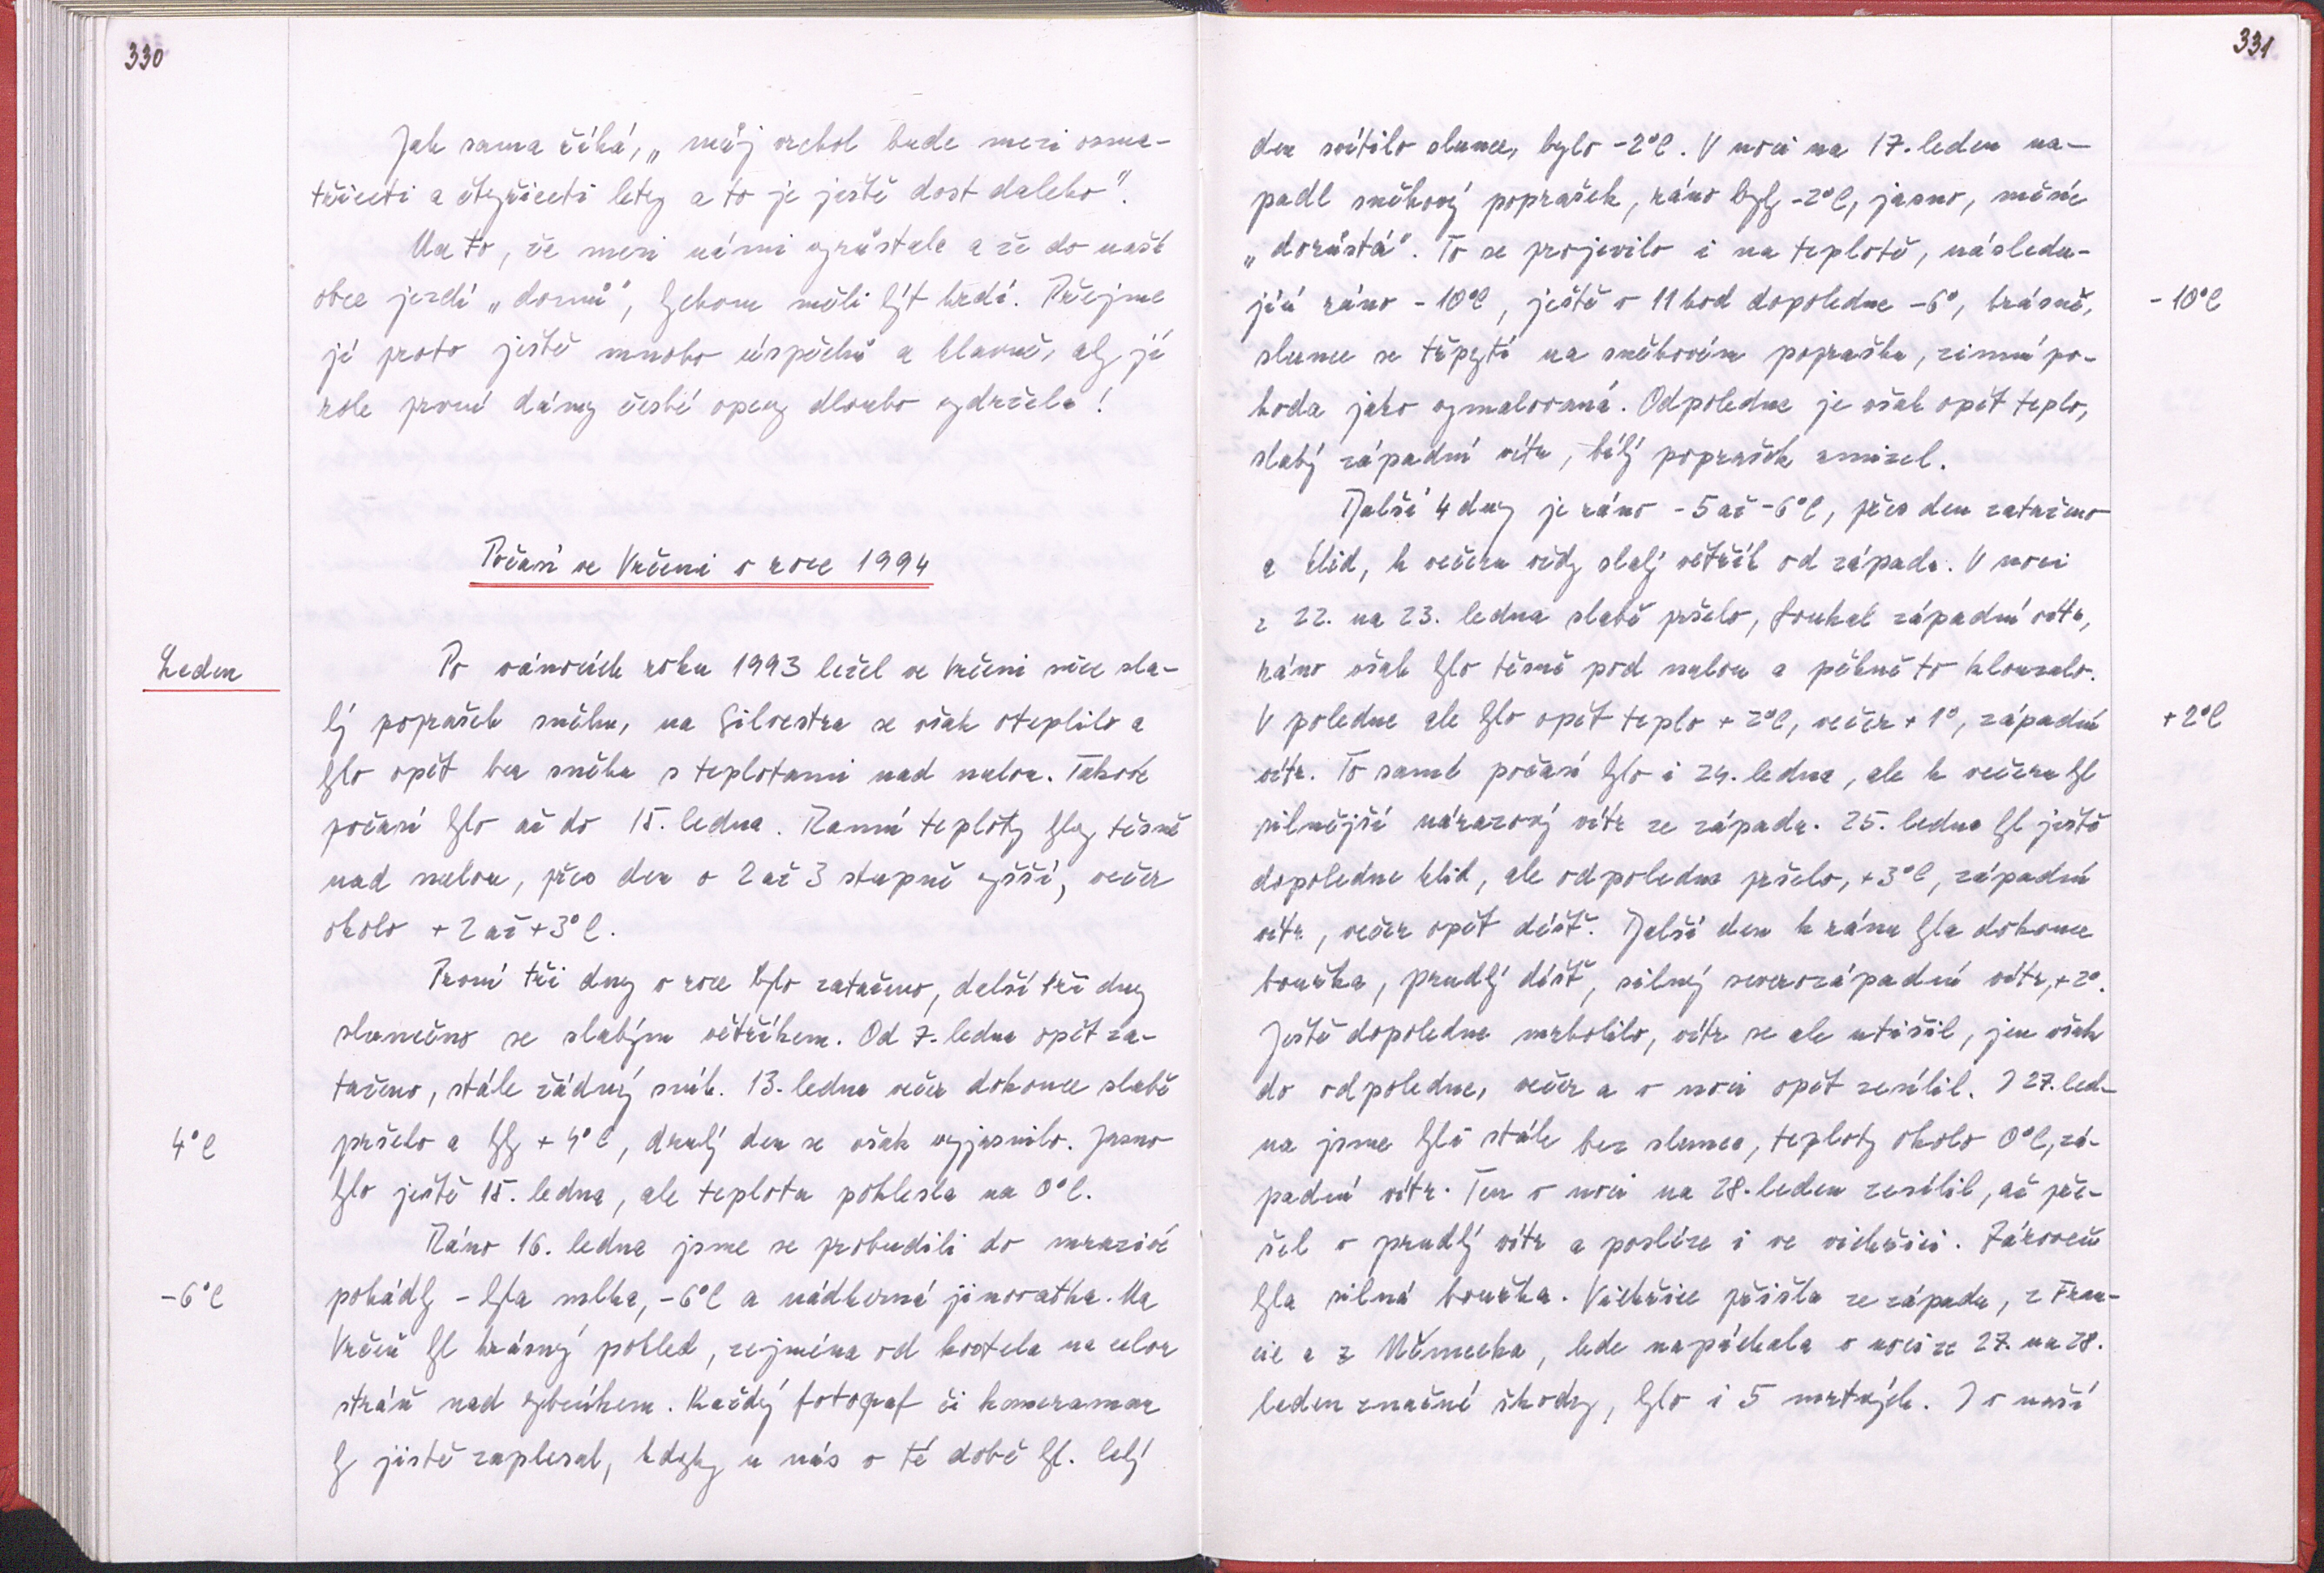 330
Jak sama říká, „můj vrchol bude mezi osma-
třiceti a čtyřiceti lety a to je ještě dost daleko".
Na to, že mezi námi vyrůstala a že do naší
obce jezdí „domů", bychom měli být hrdí. Přejme
jí proto ještě mnoho úspěchů a hlavně, aby jí
role první dámy české opery dlouho vydržela!
Počasí ve Vrčeni v roce 1994
Leden
Po vánocích roku 1993 ležel ve Vrčeni sice sla-
bý poprašek sněhu, na Silvestra se však oteplilo a
bylo opět bez sněhu s teplotami nad nulou. Takové
počasí bylo až do 15. ledna. Ranní teploty byly těsně
nad nulou, přes den o 2 až 3 stupně vyšší, večer
okolo +2 až +3°C.
První tři dny v roce bylo zataženo, další tři dny
slunečno se slabým větříkem. Od 7. ledna opět za-
taženo, stále žádný sníh. 13. ledna večer dokonce slabě
4°C
pršelo a byly +4°C, druhý den se však vyjasnilo. Jasno
bylo ještě 15. ledna, ale teplota poklesla na 0°C.
Ráno 16. ledna jsme se probudili do mrazivé
-6°C
pohádky - byla mlha, -6°C a nádherná jinovatka. Na
Vrčeň byl krásný pohled, zejména od kostela na celou
stráň nad rybníkem. Každý fotograf či kameraman
by jistě zaplesal, kdyby u nás v té době byl. Celý
331
den svítilo slunce, bylo -2°C. V noci na 17. leden na-
padl sněhový poprašek, ráno byly -2°C, jasno, měsíc
„dorůstá". To se projevilo i na teplotě, následu-
jící ráno -10°C, ještě v 11 hod dopoledne -6°, krásně,
-10°C
slunce se třpytí na sněhovém poprašku, zimní po-
hoda jako vymalovaná. Odpoledne je však opět teplo,
slabý západní vítr, bílý poprašek zmizel.
Další 4 dny je ráno -5 až -6°C, přes den zataženo
a klid, k večeru vždy slabý větřík od západu. V noci
z 22. na 23. ledna slabě pršelo, foukal západní vítr,
ráno však bylo těsně pod nulou a pěkně to klouzalo.
V poledne ale bylo opět teplo +2°C, večer +1°, západní
+2°C
vítr. To samé počasí bylo i 24. ledna, ale k večeru byl
silnější nárazový vítr ze západu. 25. ledna byl ještě
dopoledne klid, ale odpoledne pršelo, +3°C, západní
vítr, večer opět déšť. Další den k ránu byla dokonce
bouřka, prudký déšť, silný severozápadní vítr, +2°.
Ještě dopoledne mrholilo, vítr se ale utišil, jen však
do odpoledne, večer a v noci opět zesílil. I 27. led-
na jsme byli stále bez slunce, teploty okolo 0°C, zá-
padní vítr. Ten v noci na 28. leden zesílil, až pře-
šel v prudký vítr a posléze i ve vichřici. Zároveň
byla silná bouřka. Vichřice přišla ze západu, z Fran-
cie a z Německa, kde napáchala v noci ze 27. na 28.
leden značné škody, bylo i 5 mrtvých. I v naší